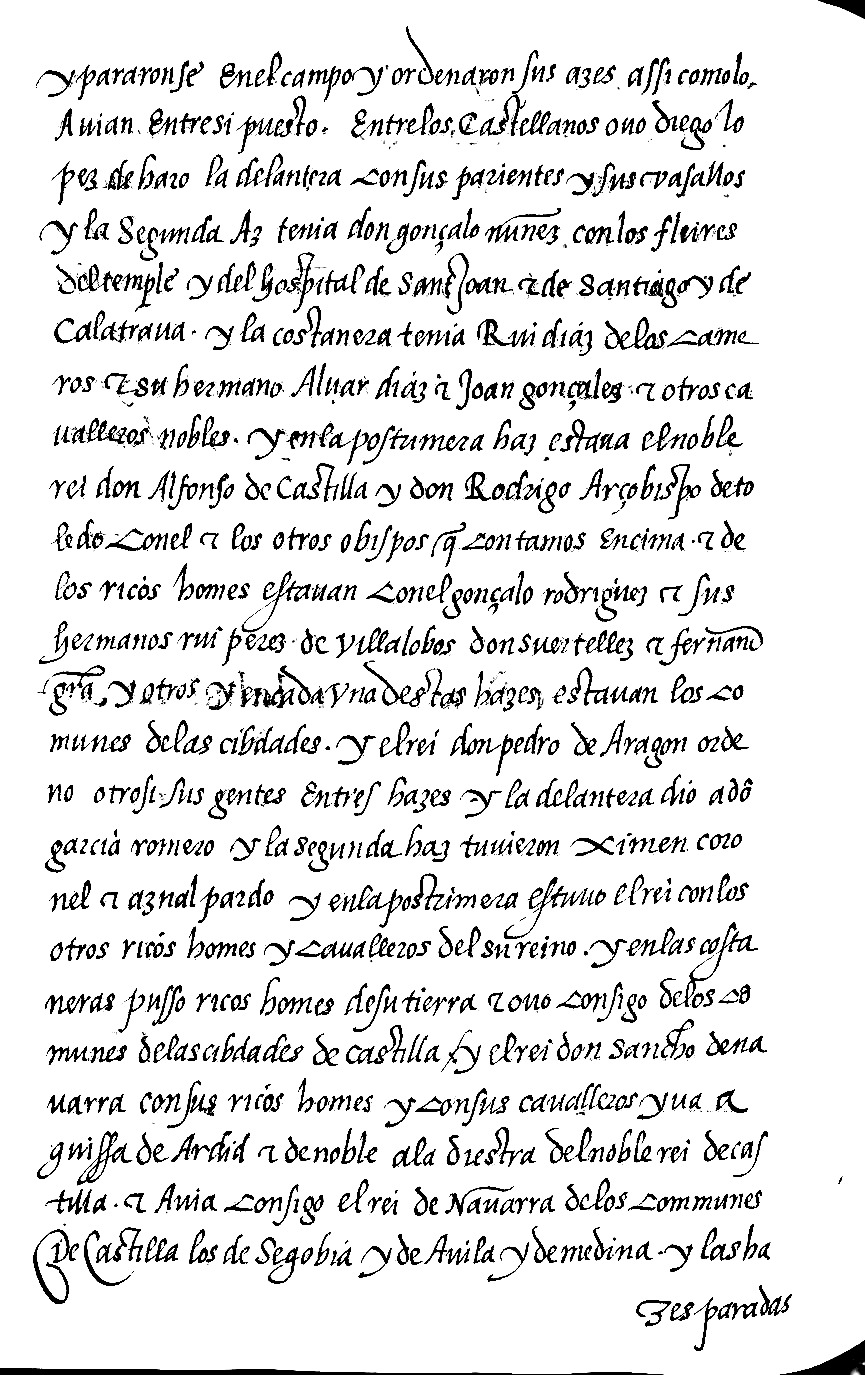 y pararonse En el campo y ordenaron sus azes assi como lo
Auian Entresi puesto. Entre los Castellanos ouo diego lo
pez de haro la delantera con sus parientes y sus vasallos
y la Segunda Az tenia don gonçalo nunez con los fleires
del temple y del hospital de Sant Joan τ de Santiago y de
Calatraua. y la costanera tenia Rui diáz de los came
ros τ su hermano Aluar diáz τ Joan gonçalez τ otros ca
ualleros nobles. y en la postumera haz estaua el noble
rei don Alfonso de Castilla y don Rodrigo Arçobispo de to
ledo con el τ los otros obispos q̃ contamos Encima. τ de
los ricos homes estauan con el gonçalo rodriguez τ sus
hermanos rui perez de villalobos don suer tellez τ fernand
gra. y otros y en cada vna destas hazes estauan los co
munes de las cibdades. y el rei don pedro de Aragon orde
no otrosi sus gentes En tres hazes y la delantera dio a dõ
garcia romero y la segunda haz tuuieron Ximen coro
nel τ aznal pardo y en la postrimera estuuo el rei con los
otros ricos homes y caualleros del su reino. y en las costa
neras pusso ricos homes de su tierra τ ouo consigo de los co
munes de las cibdades de castilla y el rei don Sancho de na
uarra con sus ricos homes y con sus caualleros yua a
guissa de Ardid τ de noble a la diestra del noble rei de cas
tilla. τ Auia consigo el rei de Nauarra de los communes
De Castilla los de Segobia y de Auila y de medina. y las ha
zes paradas